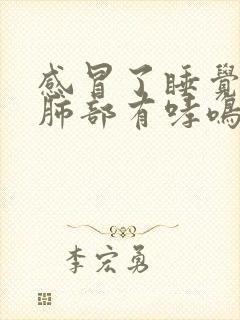 感冒了睡覺
肺部有哮鳴
李宏勇